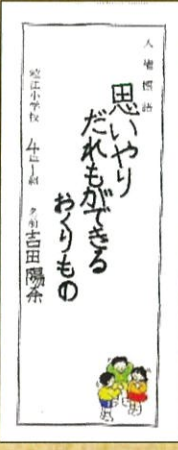 人権標語
思いやり
だれもができる
おくりもの
小学校 4年1組 名前 吉田 陽奈